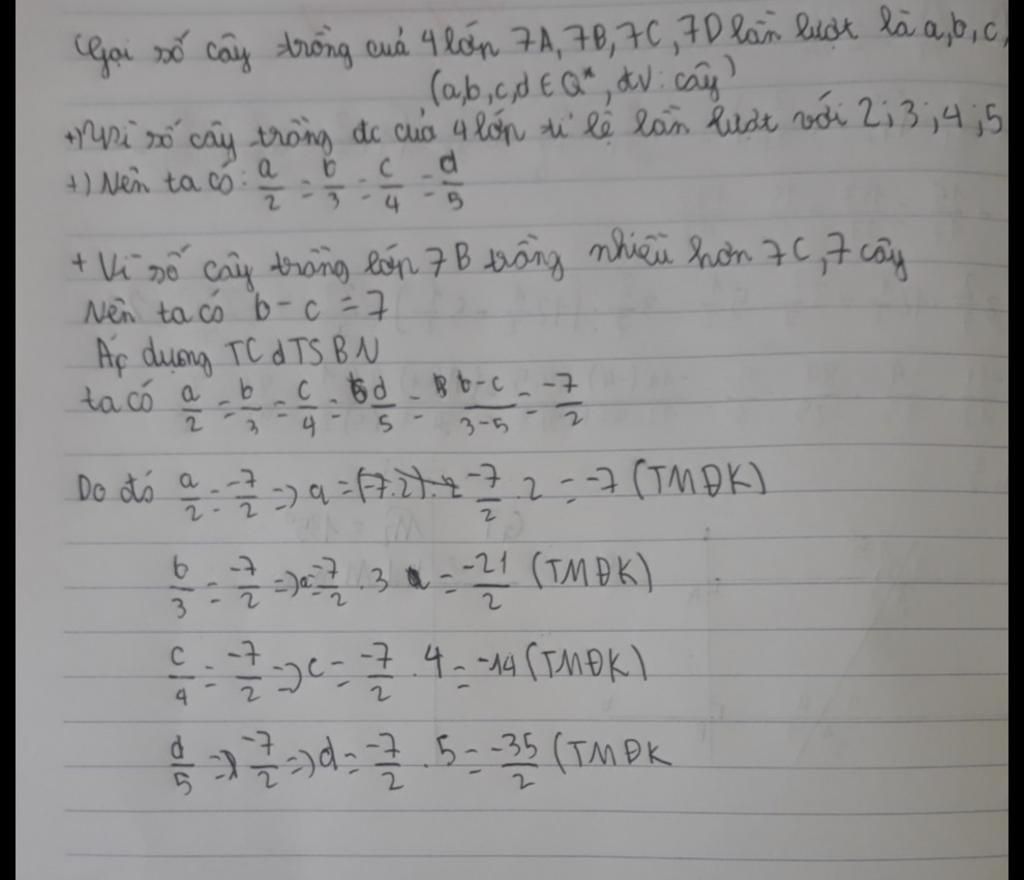 Gọi số cây trồng cuả 4 lớp 7A, 7B, 7C, 7D lần lượt là a, b, c,
(a,b,c,d ∈ Q*, đv: cây)
+) Vì số cây trồng đc của 4 lớp tỉ lệ lần lượt với 2; 3; 4; 5
+) Nên ta có: a/2 = b/3 = c/4 = d/5
+ Vì số cây trồng lớp 7B trồng nhiều hơn 7C, 7 cây
Nên ta có b - c = 7
Áp dụng TC dTSBN
ta có a/2 = b/3 = c/4 = d/5 = b-c/3-5 = -7/2
Do đó a/2 = -7/2 => a = -7/2 . 2 = -7 (TMĐK)
b/3 = -7/2 => a = -7/2 . 3 = -21/2 (TMĐK)
c/4 = -7/2 => c = -7/2 . 4 = -14 (TMĐK)
d/5 => -7/2 => d = -7/2 . 5 = -35/2 (TMĐK